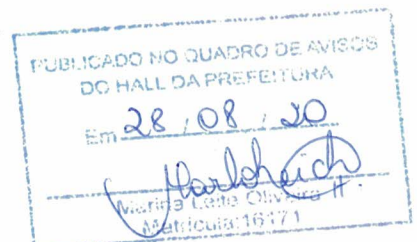 PUBLICADO NO QUADRO DE AVISOS
DO HALL DA PREFEITURA
Em 28 / 08 / 20
Marina Leite Oliveira H.
Matrícula:16171